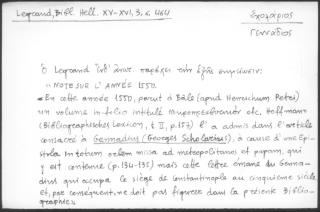 Legrand, Bibl. Hell. XV-XVI, 3, σ. 464
Σχολάριος
Γεννάδιος
Ὁ Legrand ἐνθ' ἀνωτ. παρέχει τὴν ἑξῆς σημείωσιν:
"NOTE SUR L'ANNÉE 1550.
En cette année 1550, parut à Bâle (apud Henrichum Petri)
un volume in folio intitulé etc. Hoffmann
(Bibliographisches Lexicon, t. II, p. 157) l'a admis dans l'article
consacré à Gennadius (Georges Scholarius), à cause d'une Epi-
stola in totum orbem missa ad metropolitanos et papam, qui
y est contenue (p. 134-135) mais cette lettre émane du Genna-
dius qui occupa le siège de Constantinople au cinquième siècle
et, par conséquent, ne doit pas figurer dans la présente Biblio-
graphie".